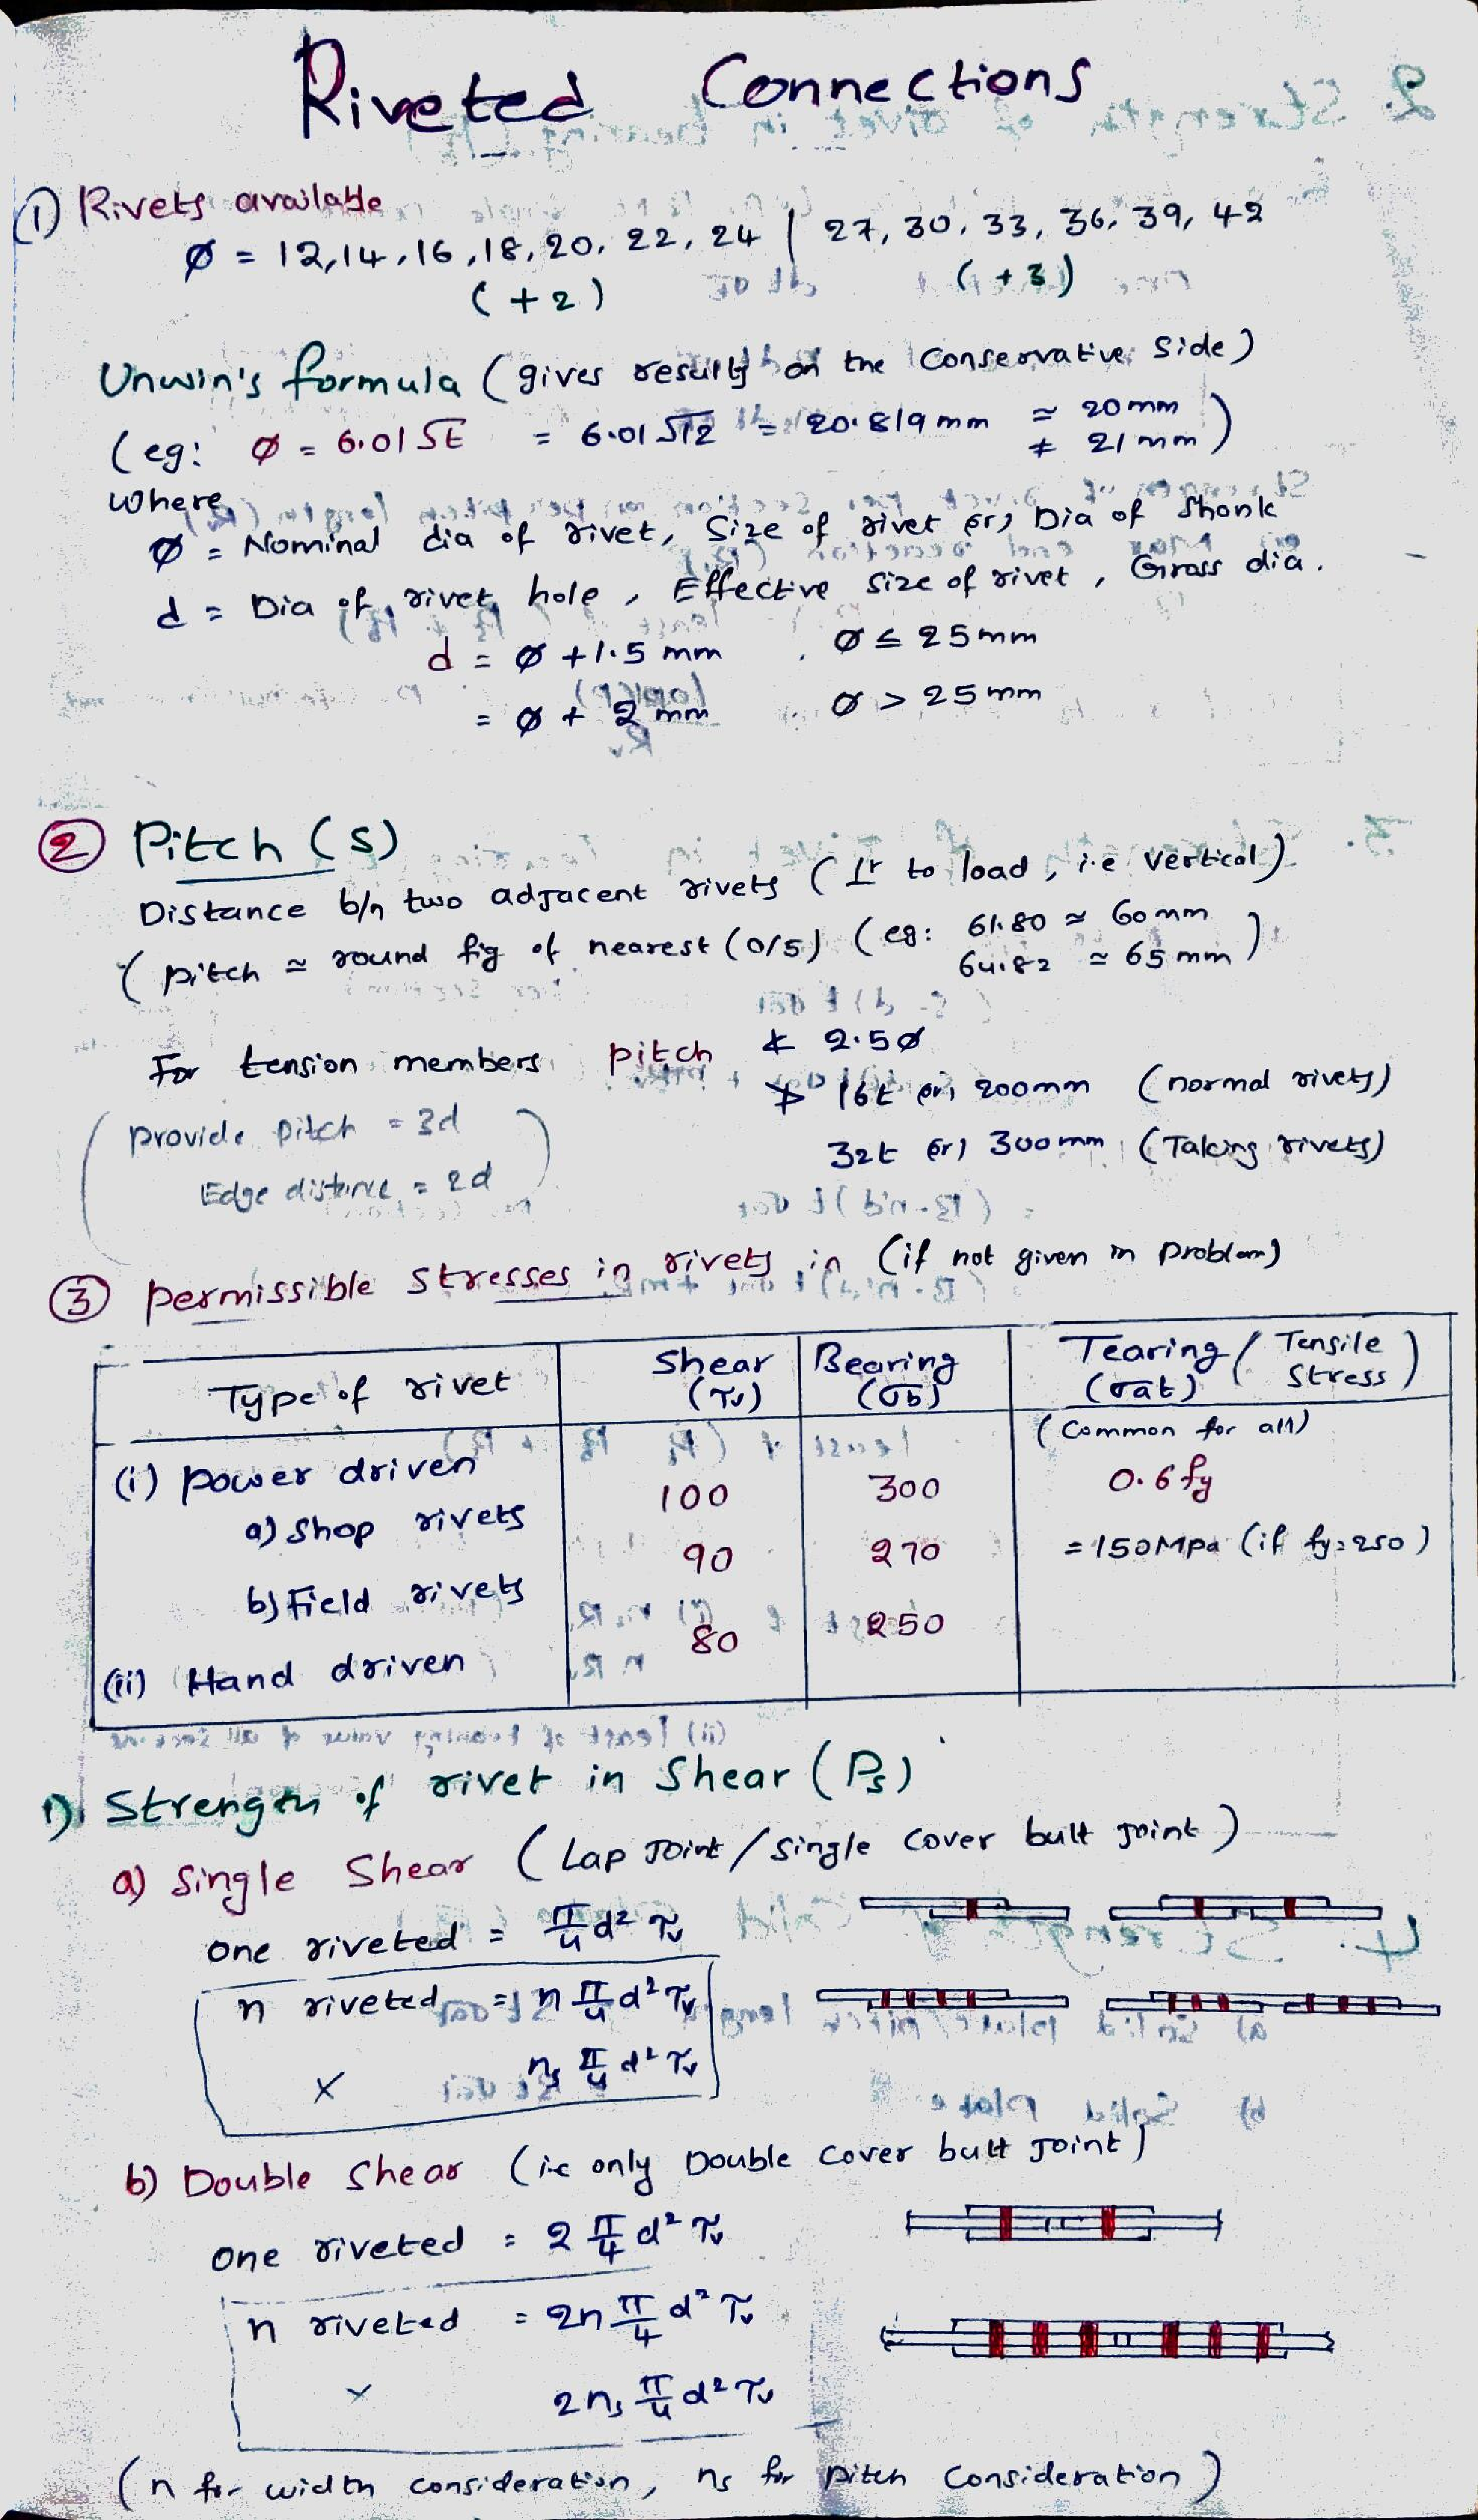 Riveted Connections
① Rivets available
Ø = 12,14,16,18,20,22,24 | 27,30,33,36,39,42
(+2) (+3)
Unwin's formula (gives results on the conservative side)
(eg: Ø = 6.01√t = 6.01√12 = 20.819mm ≃ 20mm
≠ 21mm)
where,
Ø = Nominal dia of rivet, Size of rivet (or) Dia of Shank
d = Dia of rivet hole, Effective size of rivet, Gross dia.
d = Ø +1.5 mm , Ø ≤ 25mm
= Ø + 2 mm Ø > 25mm
② Pitch (S)
Distance b/n two adjacent rivets (⊥r to load, i.e vertical)
(pitch ≃ round fig of nearest (0/5) (eg: 61.80 ≃ 60mm
64.82 ≃ 65mm)
For tension members pitch ≮ 2.5Ø
≯ 16t (or) 200mm (normal rivets)
(Provide Pitch = 3d
32t (or) 300mm (Taking rivets)
Edge distance = 2d)
③ permissible stresses in rivets in (if not given in problem)
Type of rivet Shear Bearing Tearing (Tensile
(τv) (σb) (σat) Stress)
(Common for all)
(i) power driven
a) Shop rivets 100 300 0.6fy
b) Field rivets 90 270 = 150Mpa (if fy=250)
(ii) Hand driven 80 250
1). Strength of rivet in Shear (Ps)
a) Single Shear (Lap Joint/Single Cover butt joint)
one riveted = π/4 d² τv
n riveted = n π/4 d² τv
× ns π/4 d² τv
b) Double Shear (ie only Double cover butt Joint)
one riveted = 2 π/4 d² τv
n riveted = 2n π/4 d² τv
× 2ns π/4 d² τv
(n for width consideration, ns for pitch Consideration)